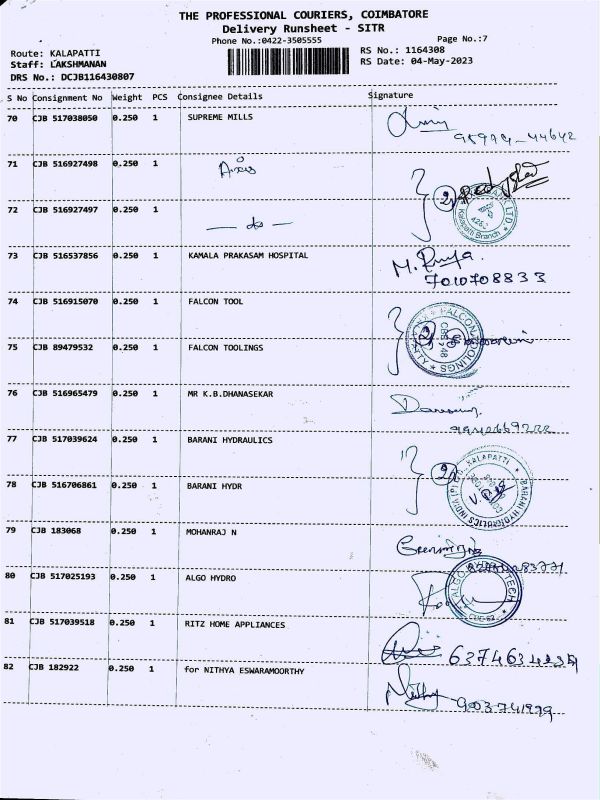 THE PROFESSIONAL COURIERS, COIMBATORE
Delivery Runsheet - SITR
Phone No.:0422-3505555 Page No.:7
Route: KALAPATTI RS No.: 1164308
Staff: LAKSHMANAN RS Date: 04-May-2023
DRS No.: DCJB116430807
S No Consignment No Weight PCS Consignee Details Signature
70 CJB 517038050 0.250 1 SUPREME MILLS
71 CJB 516927498 0.250 1 Axis
72 CJB 516927497 0.250 1 — do — 2
Kalapatti Branch
73 CJB 516537856 0.250 1 KAMALA PRAKASAM HOSPITAL
7010708833
74 CJB 516915070 0.250 1 FALCON TOOL
75 CJB 89479532 0.250 1 FALCON TOOLINGS 2
FALCON TOOLINGS
76 CJB 516965479 0.250 1 MR K.B.DHANASEKAR
77 CJB 517039624 0.250 1 BARANI HYDRAULICS
78 CJB 516706861 0.250 1 BARANI HYDR 2
KALAPATTI
BARANI HYDRAULICS INDIA
79 CJB 183068 0.250 1 MOHANRAJ N
80 CJB 517025193 0.250 1 ALGO HYDRO
ALGO TECH
81 CJB 517039518 0.250 1 RITZ HOME APPLIANCES
82 CJB 182922 0.250 1 for NITHYA ESWARAMOORTHY
Nithya 9003741999